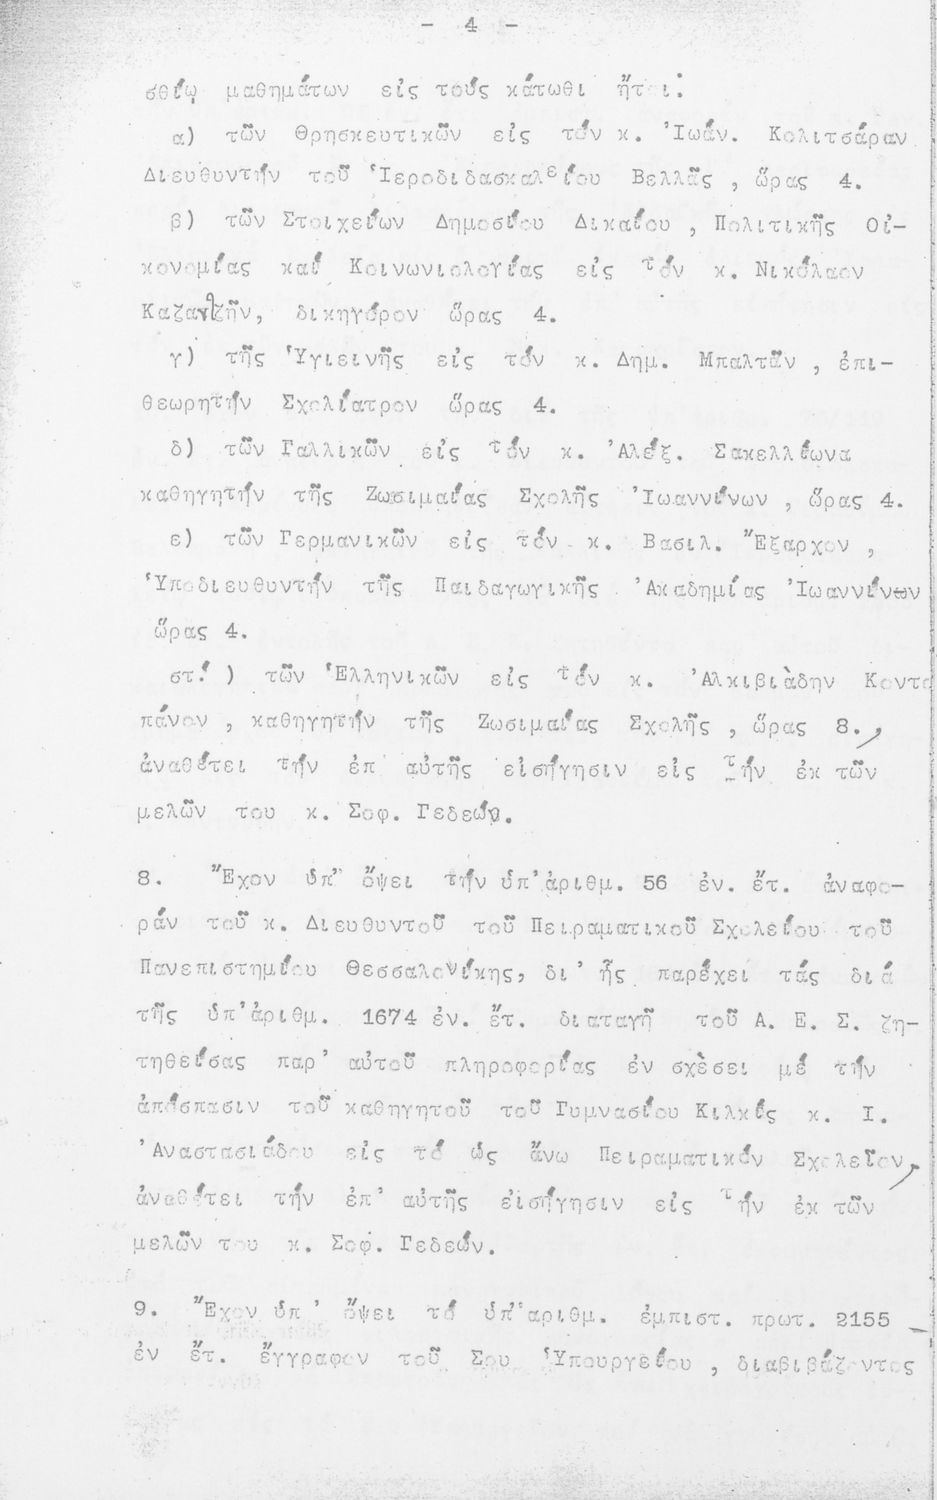 - 4 -
σθίῳ μαθημάτων εἰς τούς κάτωθι ἤτοι:
α) τῶν Θρησκευτικῶν εἰς τόν κ. Ἰωάν. Κολιτσάραν
Διευθυντήν τοῦ Ἱεροδιδασκαλείου Βελλᾶς, ὥρας 4.
β) τῶν Στοιχείων Δημοσίου Δικαίου, Πολιτικῆς Οἰ-
κονομίας καί Κοινωνιολογίας εἰς τόν κ. Νικόλαον
Καζαντζῆν, δικηγόρον ὥρας 4.
γ) τῆς Ὑγιεινῆς εἰς τόν κ. Δημ. Μπαλτᾶν, ἐπι-
θεωρητήν Σχολίατρον ὥρας 4.
δ) τῶν Γαλλικῶν εἰς τόν κ. Ἀλέξ. Σακελλίωνα
καθηγητήν τῆς Ζωσιμαίας Σχολῆς Ἰωαννίνων, ὥρας 4.
ε) τῶν Γερμανικῶν εἰς τόν κ. Βασιλ. Ἔξαρχον,
Ὑποδιευθυντήν τῆς Παιδαγωγικῆς Ἀκαδημίας Ἰωαννίνων
ὥρας 4.
στ΄) τῶν Ἑλληνικῶν εἰς τόν κ. Ἀλκιβιὰδην Κοντο
πάνον, καθηγητήν τῆς Ζωσιμαίας Σχολῆς, ὥρας 8.,
ἀναθέτει τήν ἐπ αὐτῆς εἰσήγησιν εἰς τήν ἐκ τῶν
μελῶν του κ. Σοφ. Γεδεών.
8. Ἔχον ὑπ' ὄψει τήν ὑπ' ἀριθμ. 56 ἐν. ἔτ. ἀναφο-
ράν τοῦ κ. Διευθυντοῦ τοῦ Πειραματικοῦ Σχολείου τοῦ
Πανεπιστημίου Θεσσαλονίκης, δι' ἧς παρέχει τάς διά
τῆς ὑπ' ἀριθμ. 1674 ἐν. ἔτ. διαταγῆ τοῦ Α. Ε. Σ. ζη-
τηθείσας παρ' αὐτοῦ πληροφορίας ἐν σχὲσει μέ τήν
ἀπόσπασιν τοῦ καθηγητοῦ τοῦ Γυμνασίου Κιλκίς κ. Ι.
Ἀναστασιάδου εἰς τό ὡς ἄνω Πειραματικόν Σχολεῖον,
ἀναθέτει τήν ἐπ' αὐτῆς εἰσήγησιν εἰς τήν ἐκ τῶν
μελῶν του κ. Σοφ. Γεδεών.
9. Ἔχον ὑπ' ὄψει τό ὑπ' ἀριθμ. ἐμπιστ. πρωτ. 2155
ἐν ἔτ. ἔγγραφον τοῦ Σου Ὑπουργείου, διαβιβάζοντος